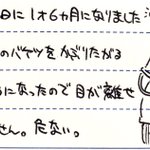 日に1才6ヵ月になりました
のバケツをかぶりたがる
になったので目が離せ
せん。危ない。